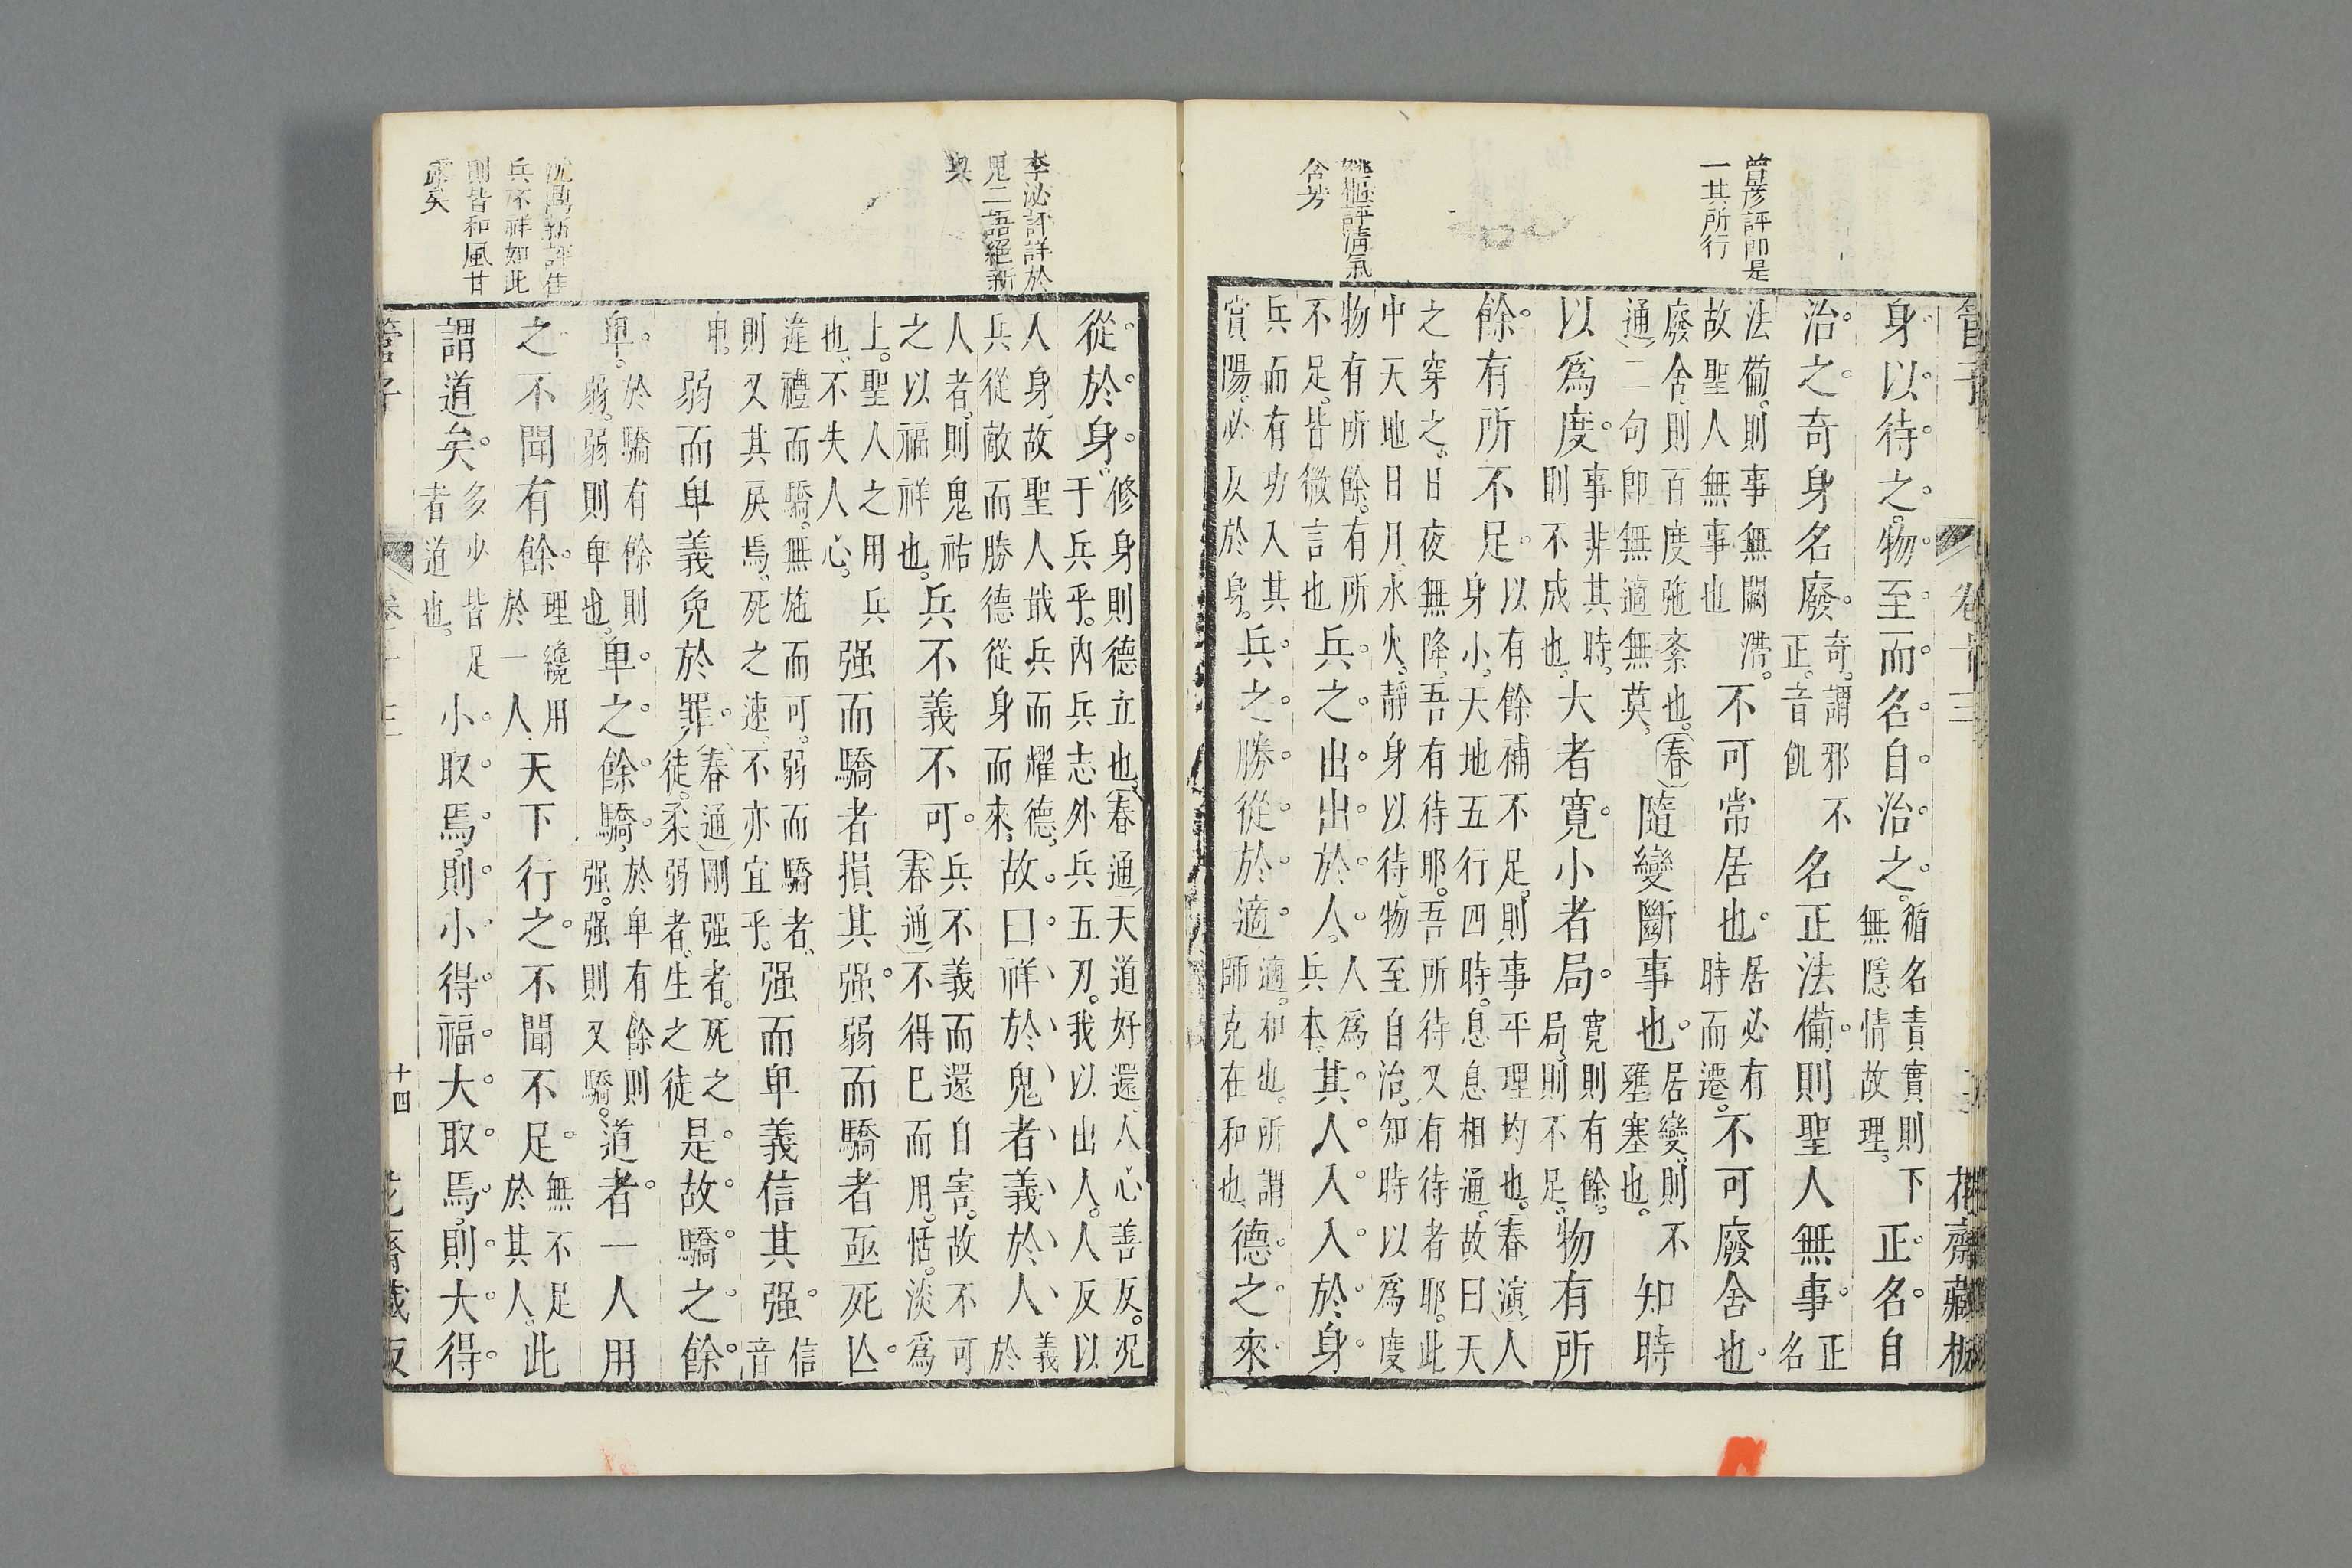 管子 卷十三 花齋藏板
曾彥評即是
一其所行
姚樞評清氣
含芳
身以待之物至而名自治之循名責實則下無隱情故理正名自
治之奇身名廢奇謂邪不正音飢名正法備則聖人無事正名
法備則事無闕滯故聖人無事也不可常居也居必有時而遷不可廢舍也
廢舍則百度弛紊也(春通)二句即無適無莫隨變斷事也居變則不壅塞也知時
以爲度事非其時則不成也大者寬小者局寬則有餘局則不足物有所
餘有所不足以有餘補不足則事平理均也(春演)人身小天地五行四時息息相通故曰天
之穿之日夜無降吾有待耶吾所待又有待者耶此中天地日月水火靜身以待物至自治知時以爲度
物有所餘有所不足皆微言也兵之出出於人人爲兵本其人入入於身
兵而有功入其賞陽必反於身兵之勝從於適適和也所謂師克在和也德之來
李泌評詳於
鬼二語絕新
沈鼎新評隹
兵不祥如此
則皆和風甘
露矣
從於身修身則德立也(春通)天道好還人心善反況于兵乎內兵志外兵五刃我以出人人反以
人身故聖人戢兵而耀德兵從敵而勝德從身而來故曰祥於鬼者義於人義於
人者則鬼祐之以福祥也兵不義不可兵不義而還自害故不可(春通)不得巳而用恬淡爲
上聖人之用兵也不失人心强而驕者損其强弱而驕者亟死亾
違禮而驕無施而可弱而驕者則又其戾焉死之速不亦宜乎强而卑義信其强信音
申弱而卑義免於罪(春通)剛强者死之徒柔弱者生之徒是故驕之餘
卑於驕有餘則弱弱則卑也卑之餘驕於卑有餘則强强則又驕道者一人用
之不聞有餘理纔用於一人天下行之不聞不足無不足於其人此
謂道矣多少皆足者道也小取焉則小得福大取焉則大得
管子 卷十三 十四 花齋藏板